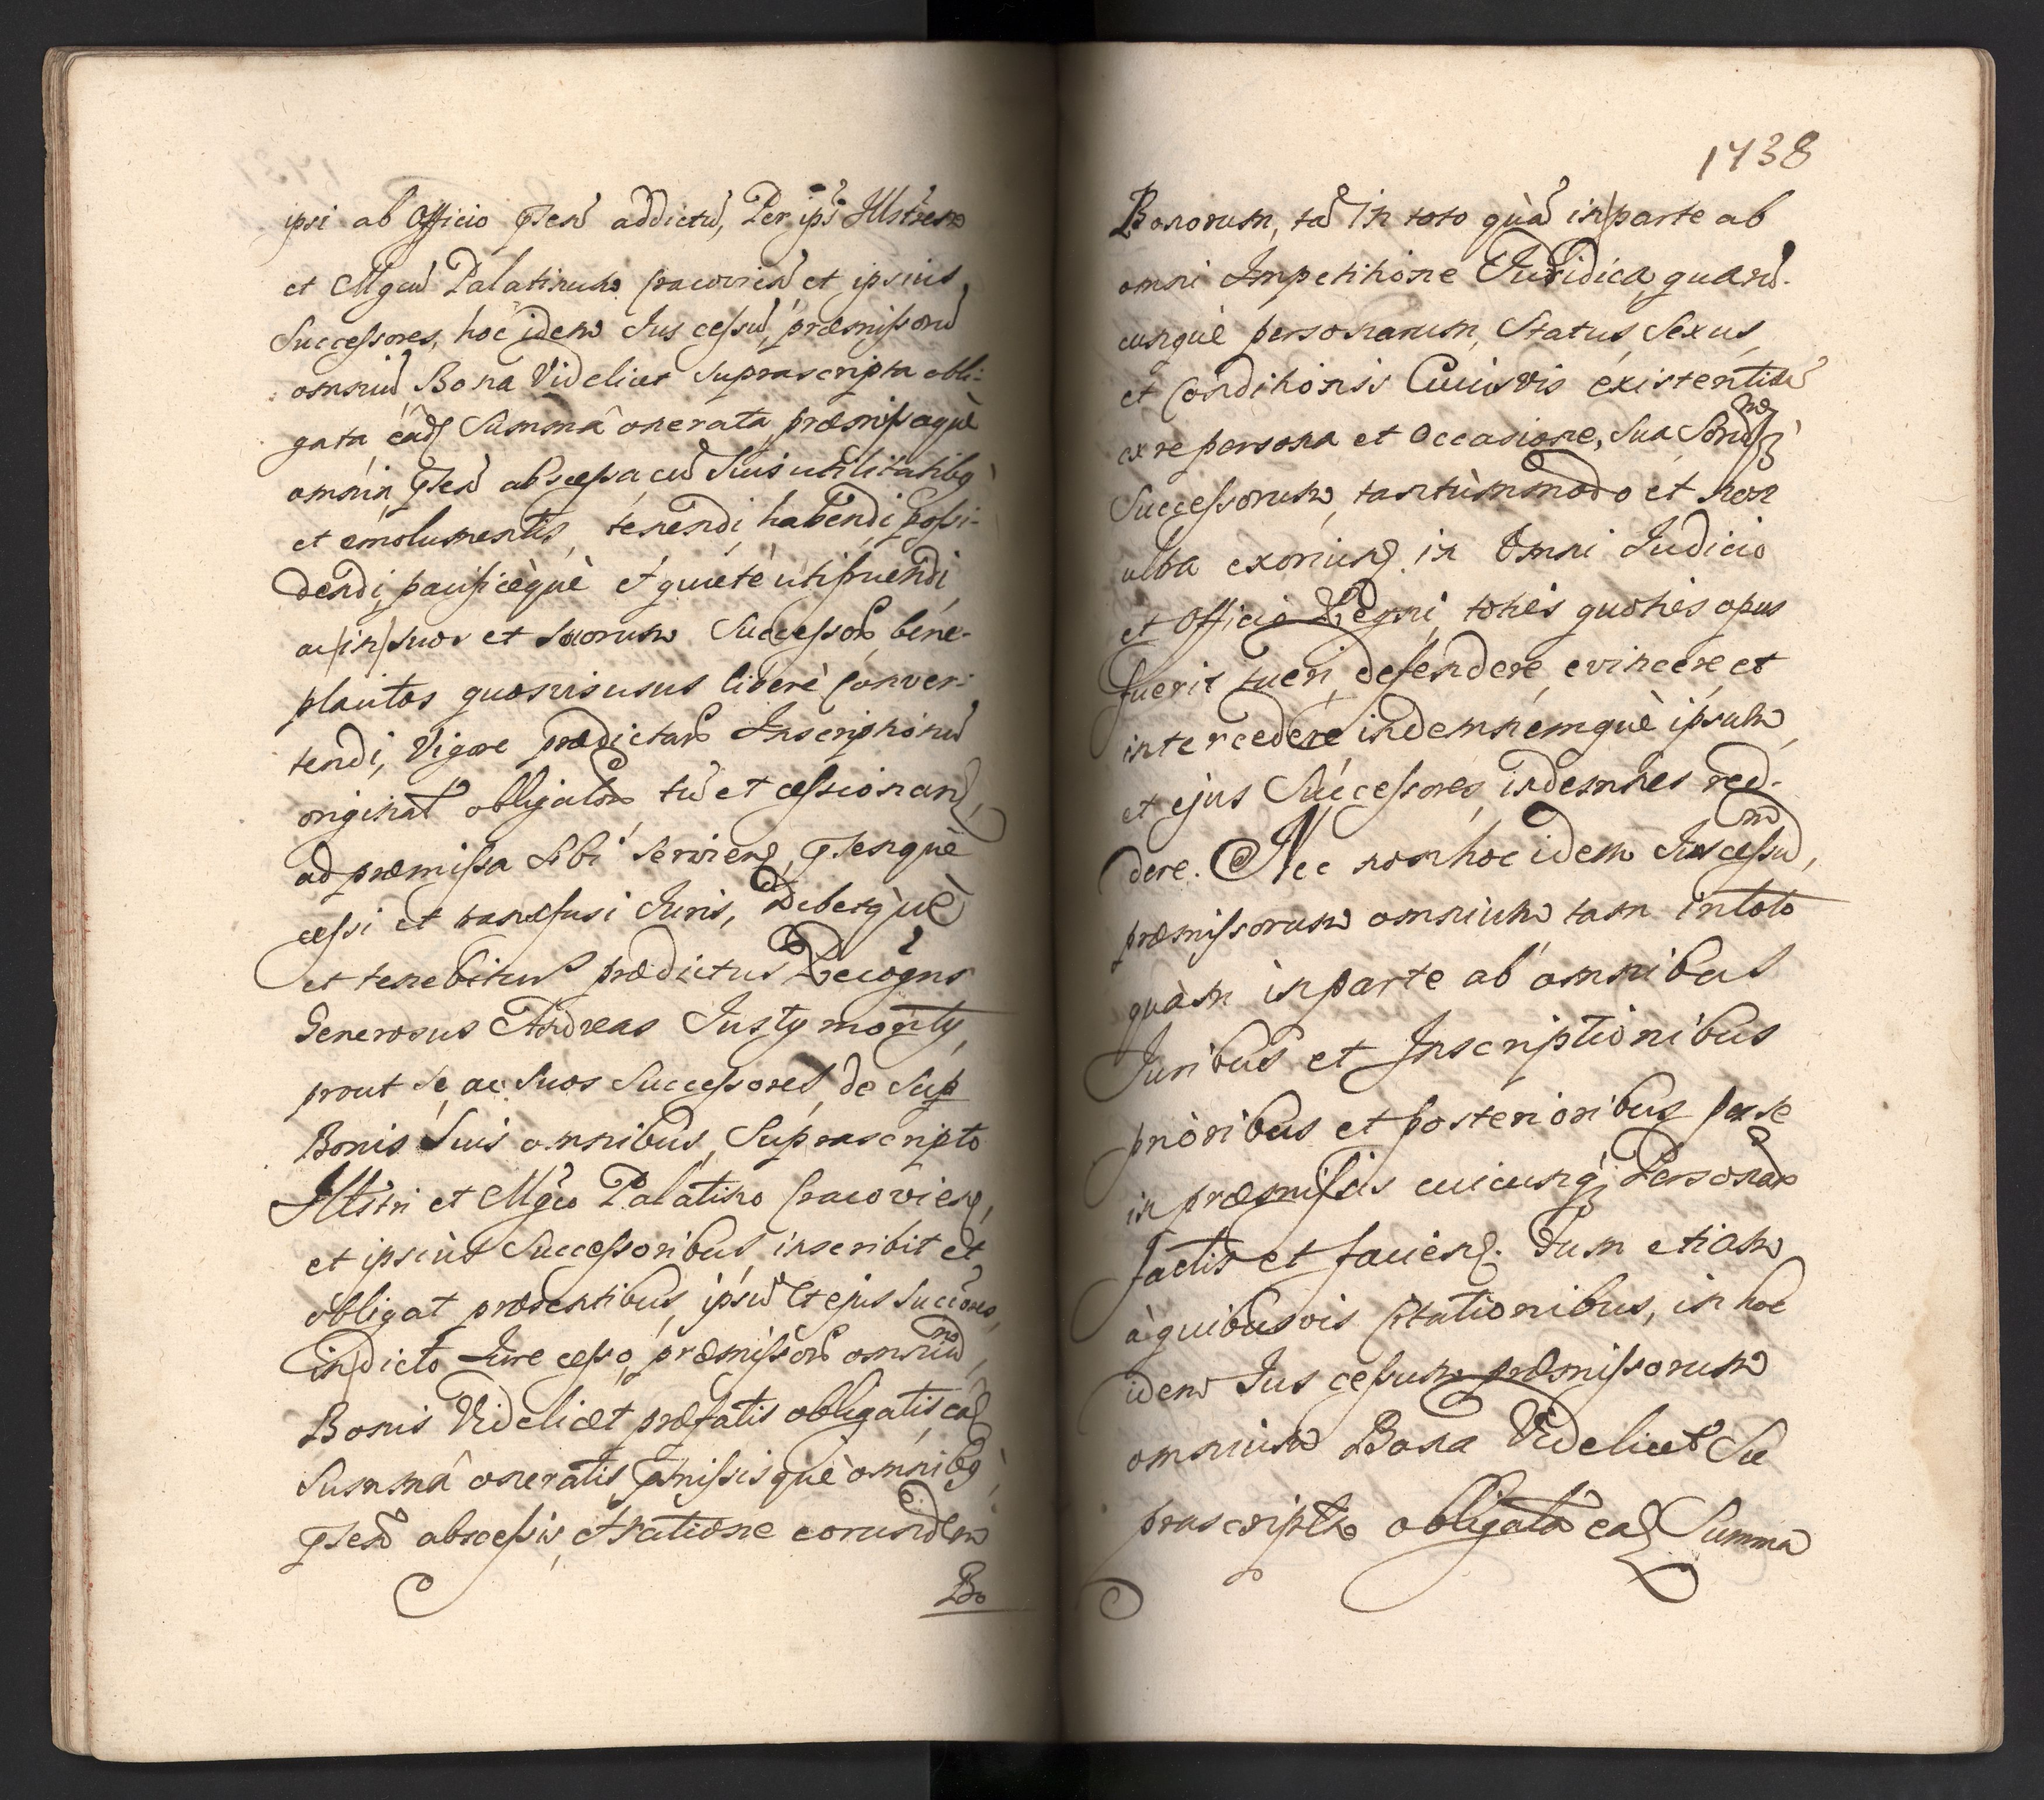 ipsi ab Officio addictũ, Per ips Illstrem
et Mgcũ Palatinum Cracovien et ipsius
Successores, hoc idem Jus cessũ, præmissorũ
omniũ Bona Videlicet suprascripta obli-
gata, eâd Summâ onerata præmissaquè
omnia abscessa cũ Suis utilitatibq
et emolumentis, tenendi, habendi, possi-
dendi, pacificèquè et quietè utifruendi
ac in suos et suorum Successor bene-
placitos quosvis usus liberè conver-
tendi, Vigore prædictar Inscriptionũ
originał obligator tũ et cessionar,
ad præmissa sibi servien,
cessi et transfusi Juris, Debetquè
et tenebitur prædictus Recogns
Generosus Andreas Justymonty,
prout se ac suos Successores, de Sup
Bonis Suis omnibus, Suprascripto
Illstri et Mgco Palatino Cracovien,
et ipsius Successoribus, inscribit et
obligat præsentibus, ipsũ et ejus Succores,
in dicto Jure cesso, præmissor omniũ,
Bonis Videlicet præfatis obligatis, ead
Summâ oneratis, pmissisquè omnibq
abscessis, et ratione eorundem
Bo
1738
Bonorum, tã in toto quã in parte ab
omni Impetitione Juridica, quarũ-
cunquè personarum, Status, Sexus,
et Conditionis Cuiusvis existentiũ
ex re persona et occasione, sua
Successorum, tantùmmodo et non
ultra exoriun. in Omni Judicio
et Officio Regni, toties quoties opus
fuerit tueri, defendere, evincere et
intercedere indemnemquè ipsum,
et ejus Successores, indemnes red-
dere. Nec non hoc idem Jus cessũ,
præmissorum omnium tam in toto
quàm in parte ab omnibus
Juribus et Inscriptionibus
prioribus et posterioribus per se
in præmissis cuicunq Personar
factis et facien. Tum etiam
à quibusvis Citationibus, in hoc
idem Jus cessum præmissorum
omnium Bona Videlicet Su
prascripta obligata ead Summa